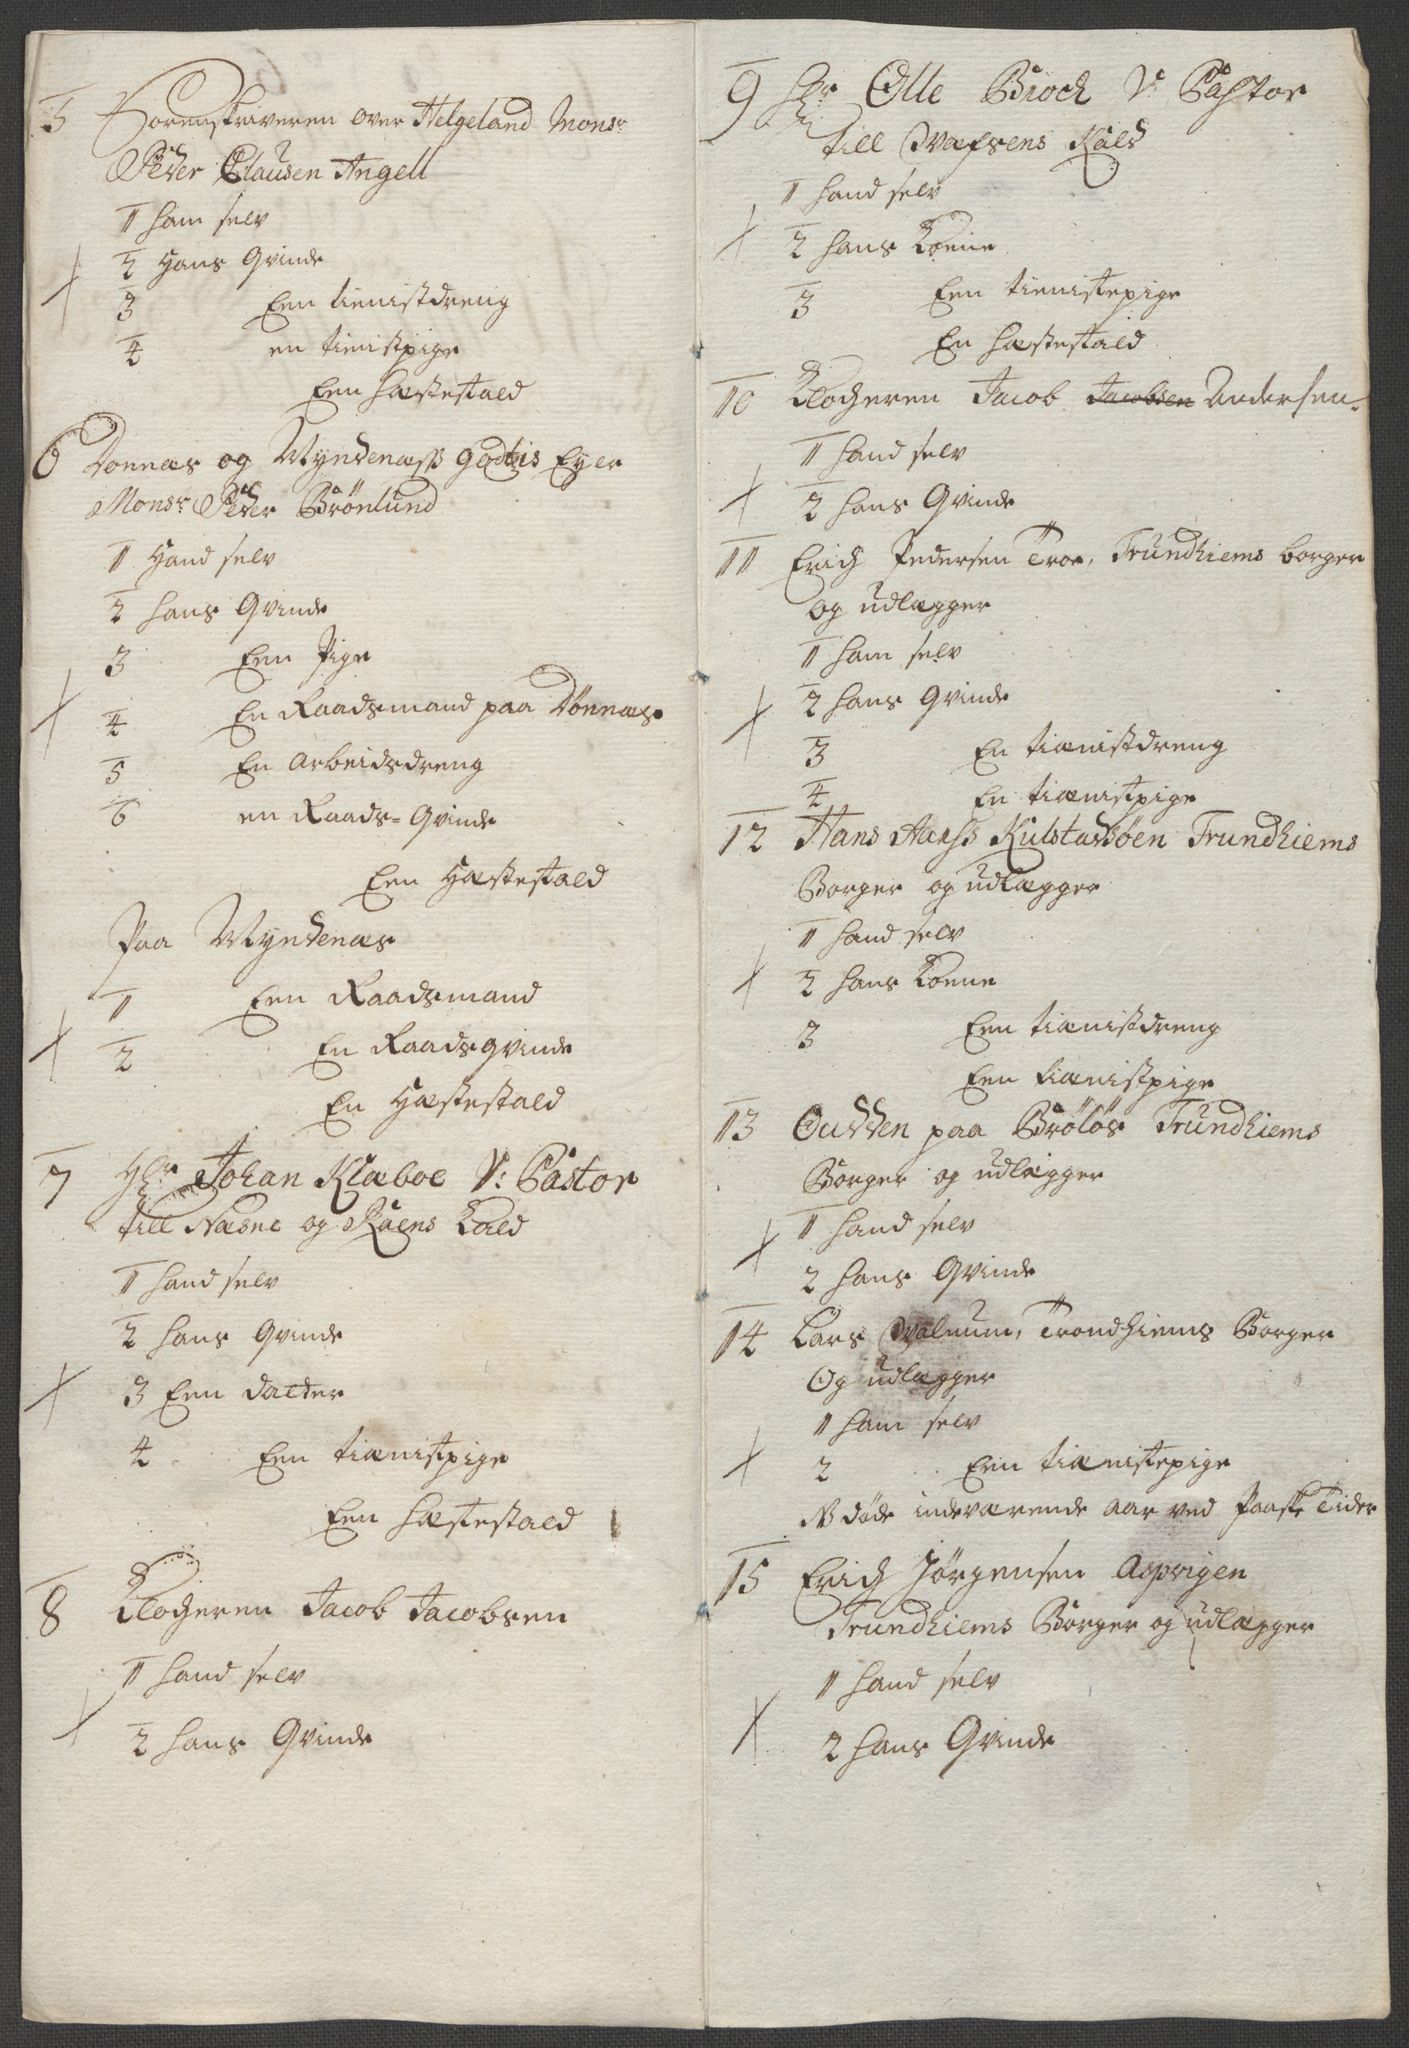 5 Sorenskriveren over Helgeland Monsr
Peder Clausen Angell
1 ham selv
2 Hans Qvinde
3 Een tienistdreng
4 en tienistpige
Een hæstestald
6 Donnæs og Tyndenæss godtis Eyer
Monsr Peder Brönlund
1 Hand selv
2 hans Qvinde
3 Een Pige
4 En Raadsmand paa Dönnæs
5 En Arbeidsdreng
6 en Raads-Qvinde
Een Hæstestald
Paa Tyndenæs
1 Een Raadsmand
2 En Raadsqvinde
En Hæstestald
7 Hr Johan Klæboe V: Pastor
till Næsne og Raens Kald
1 hand selv
2 hans Qvinde
3 Een datter
4 Een tiænistpige
Een hæstestald
8 Klocheren Jacob Jacobsen
1 hand selv
2 hans Qvinde
9 Hr Olle Broch V: Pastor
till Wæfsens Kald
1 hand selv
2 hans Koene
3 Een tienistepige
En hæstestald
10 Klocheren Jacob Jacobsen Andersen
1 hand selv
2 hans Qvinde
11 Erich Pedersen Troe, Trundhiems borger
og udlægger
1 ham selv
2 hans Qvinde
3 En tiænistdreng
4 En tiænistpige
12 Hans Hanss Kulstadsöen Trundhiems
Borger og udlægger
1 hand selv
2 hans Koene
3 Een tiænistdreng
Een tiænistpige
13 Oudden paa Brölös Trundhiems
Borger og udlægger
1 hand selv
2 hans Qvinde
14 Lars Walnum, Trondhiems Borger
Og udlægger
1 ham selv
2 Een tiænistepige
N döde indeværende aar ved Paaske Tider
15 Erich Jörgensen Aspvigen
Trundhiems Borger og udlægger
1 hand selv
2 hans Qvinde